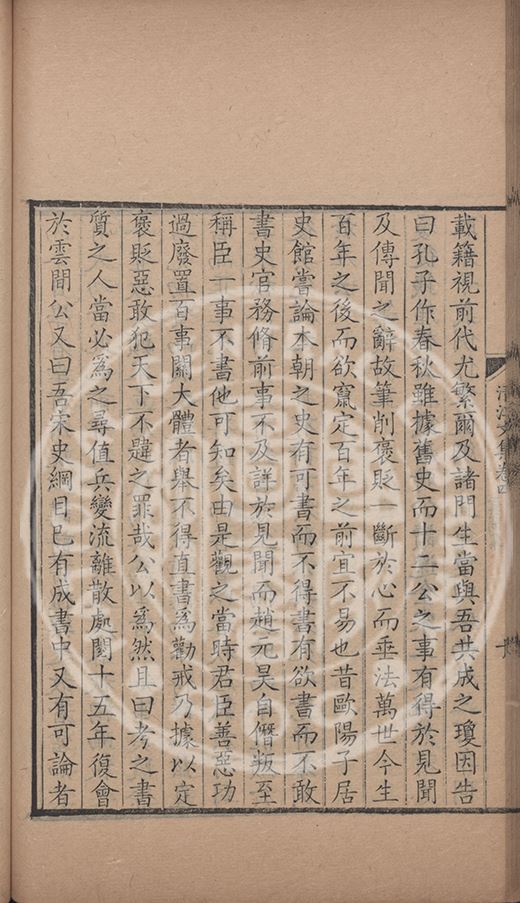 載籍視前代尤繁爾及諸門生當與吾共成之瓊因告
曰孔子作春秋雖據舊史而十二公之事有得於見聞
及傳聞之辭故筆削褒貶一斷於心而垂法萬世今生
百年之後而欲竄定百年之前宜不易也昔歐陽子居
史館嘗論本朝之史有可書而不得書有欲書而不敢
書史官務脩前事不及詳於見聞而趙元昊自僭叛至
稱臣一事不書他可知矣由是觀之當時君臣善惡功
過廢置百事關大體者舉不得直書為勸戒乃據以定
褒貶惡敢犯天下不韙之罪哉公以為然且曰考之書
質之人當必為之尋值兵變流離散處闊十五年復會
於雲間公又曰吾宋史綱目已有成書中又有可論者
清江文集卷四
十